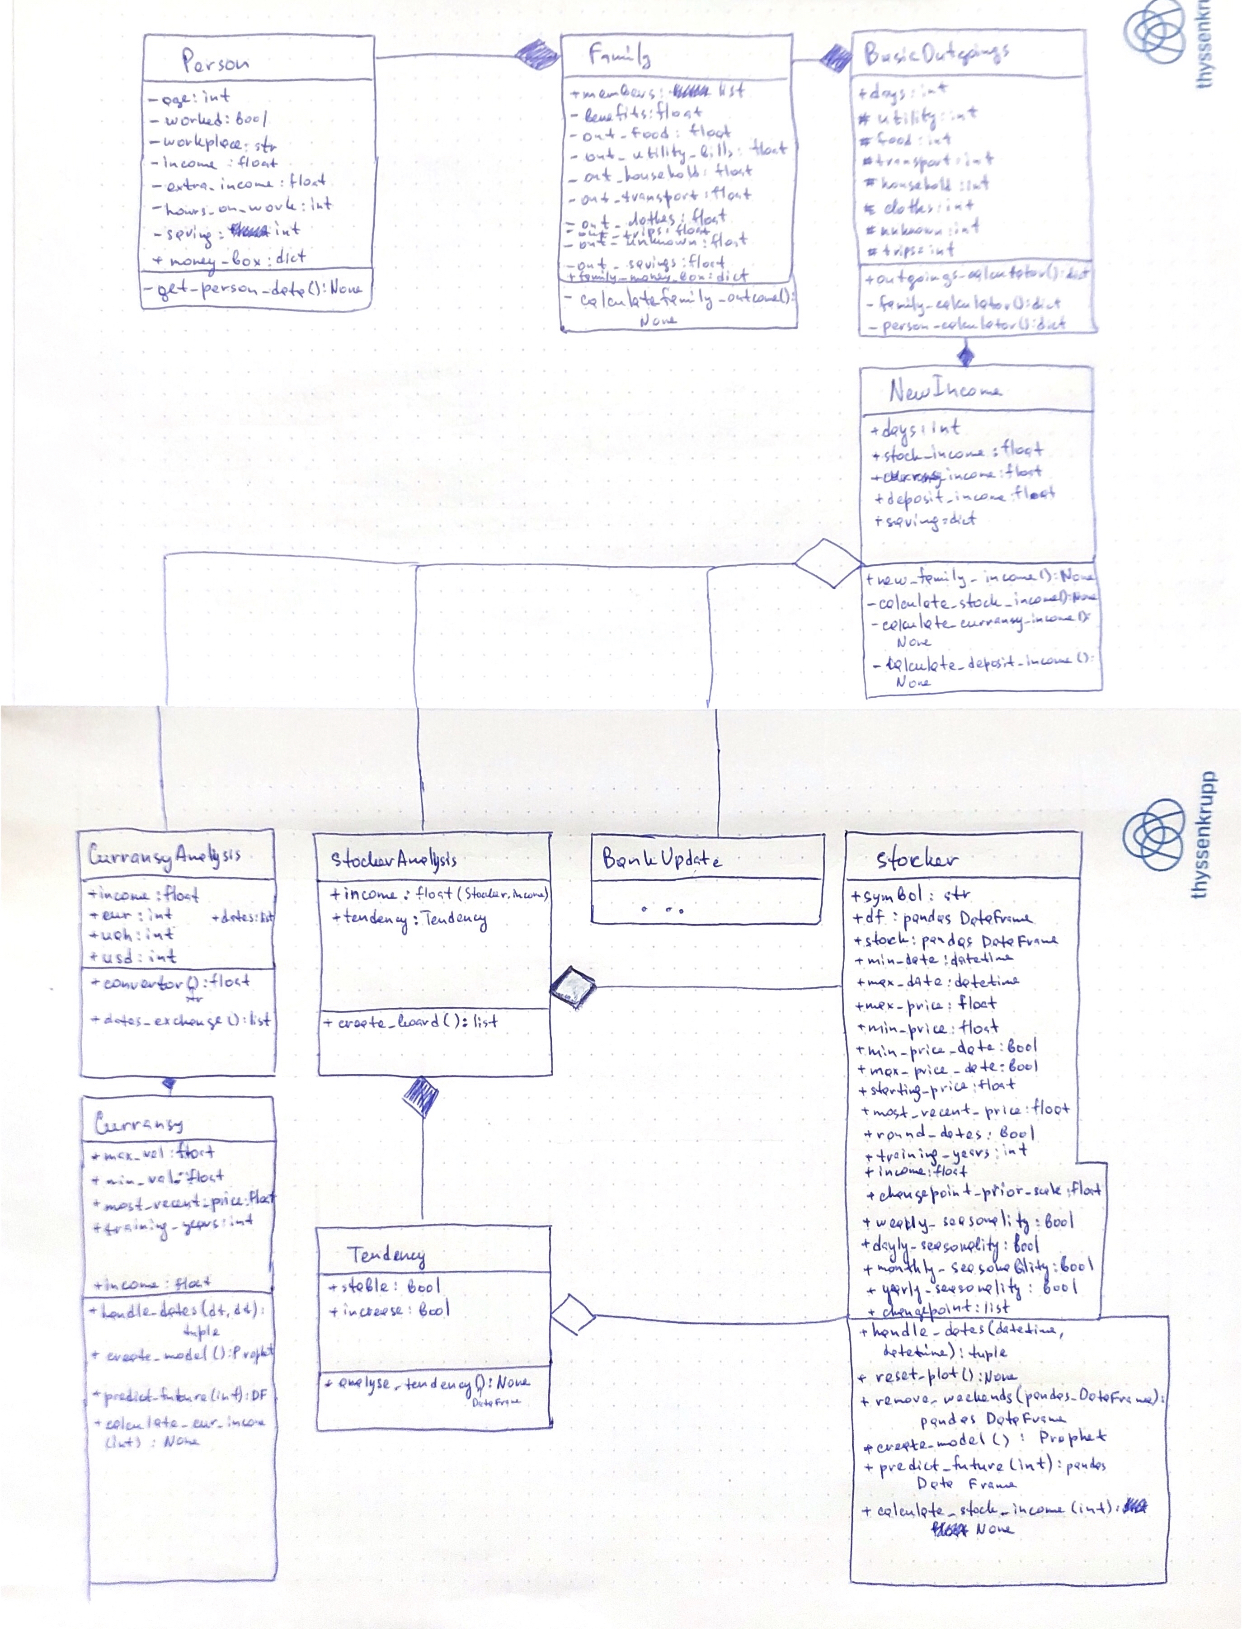 thyssenkrupp
Person
- age: int
- worked: bool
- workplace: str
- income : float
- extra_income: float
- hours_on_work: int
- saving: int
+ money_box: dict
- get_person_data(): None
Family
+ members: list
- benefits: float
- out_food: float
- out_utility_bills: float
- out_household: float
- out_transport: float
- out_clothes: float
- out_trips: float
- out_unknown: float
- out_savings: float
+ family_money_box: dict
- calculate family_outcome():
None
BasicOutgoings
+ days: int
# utility: int
# food: int
# transport: int
# household: int
# clothes: int
# unknown: int
# trips: int
+ outgoings_calculator(): dict
- family_calculator(): dict
- person_calculator(): dict
NewIncome
+ days: int
+ stock_income: float
+ income: float
+ deposit_income: float
+ saving: dict
+ new_family_income(): None
- calculate_stock_income(): None
- calculate_curransy_income():
None
- calculate_deposit_income():
None
thyssenkrupp
CurransyAnalysis
+ income: float
+ eur: int + dates: list
+ uah: int
+ usd: int
+ convertor(): float
str
+ dates_exchange(): list
StockerAnalysis
+ income: float (Stocker.income)
+ tendency: Tendency
+ create_board(): list
BankUpdate
. . .
Stocker
+ symbol: str
+ df: pandas DataFrame
+ stock: pandas DataFrame
+ min_date: datetime
+ max_date: datetime
+ max_price: float
+ min_price: float
+ min_price_date: Bool
+ max_price_date: Bool
+ starting_price: float
+ most_recent_price: float
+ round_dates: Bool
+ training_years: int
+ income: float
+ changepoint_prior_scale: float
+ weekly_seasonality: Bool
+ dayly_seasonality: Bool
+ monthly_seasonality: Bool
+ yearly_seasonality: Bool
+ changepoint: list
+ handle_dates(datetime,
datetime): tuple
+ reset_plot(): None
+ remove_weekends(pandas_DataFrame):
pandas DataFrame
+ create_model(): Prophet
+ predict_future(int): pandas
Data Frame
+ calculate_stock_income(int):
None
Curransy
+ max_val: float
+ min_val: float
+ most_recent_price: float
+ training_years: int
+ income: float
+ handle_dates(dt, dt):
tuple
+ create_model(): Prophet
+ predict_future(int): DF
+ calculate_cur_income
(int): None
Tendency
+ stable: Bool
+ increase: Bool
+ analyse_tendency(): None
DataFrame